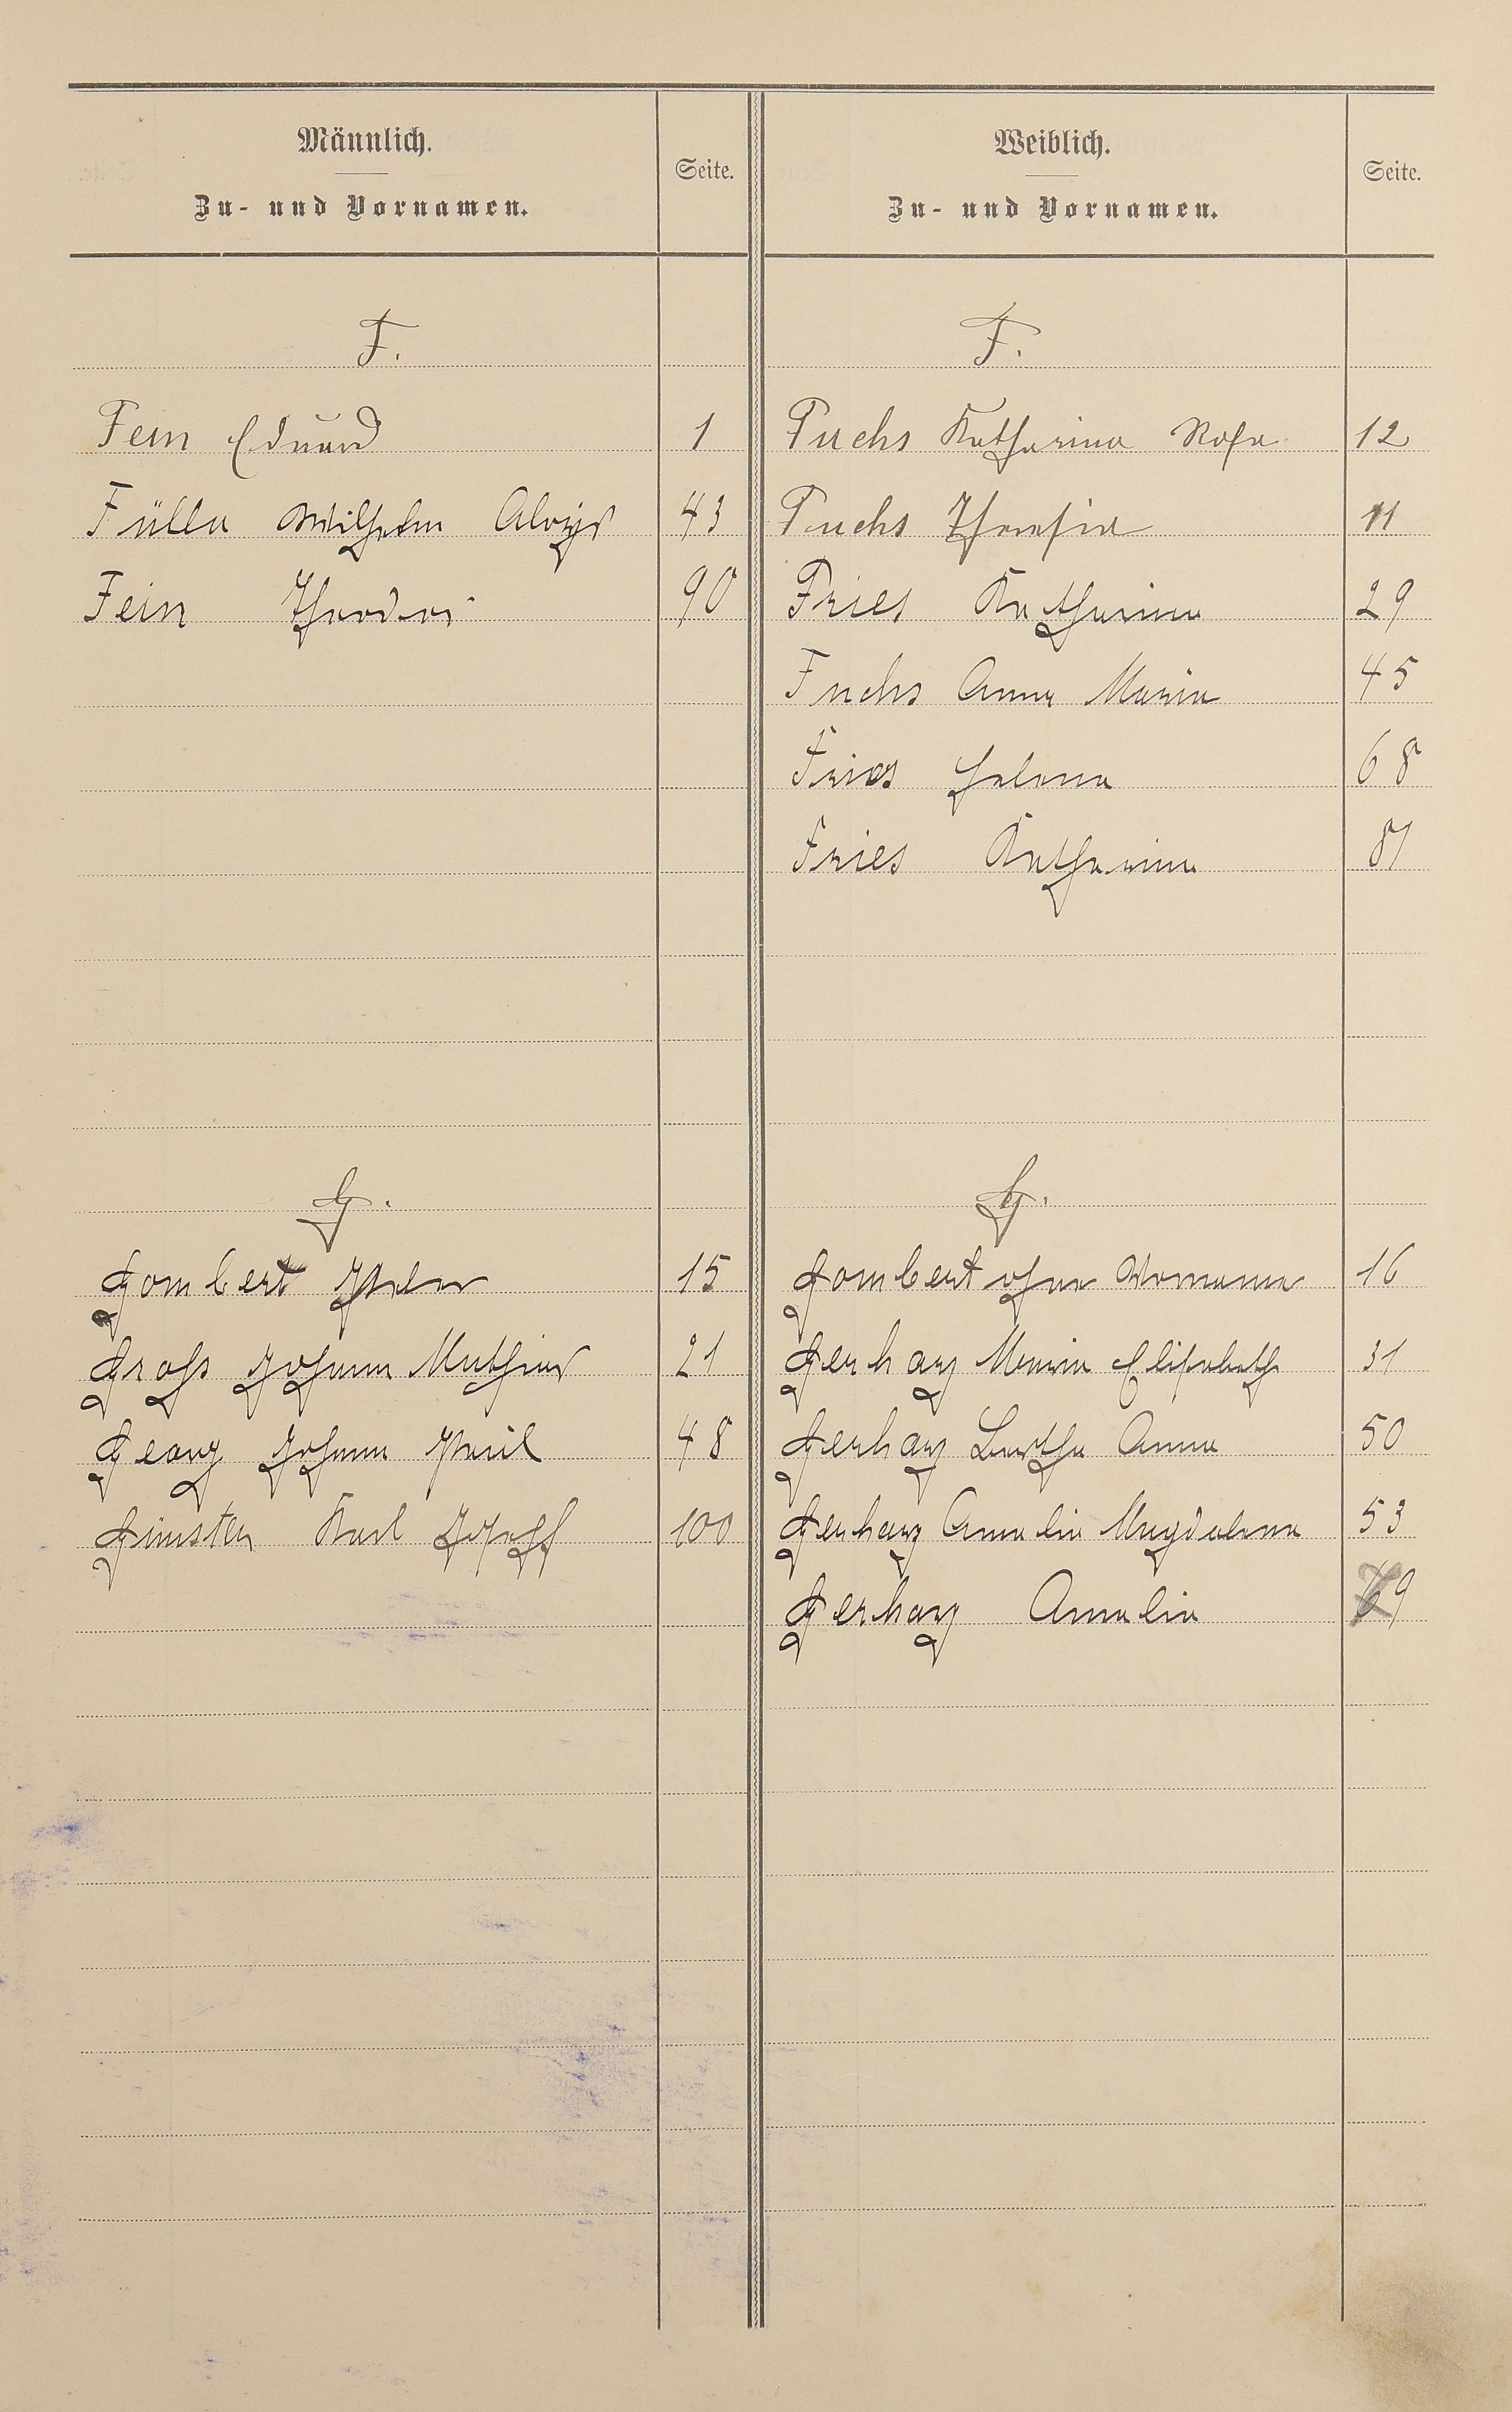 Männlich.
Zu- und Vornamen.
Seite.
F.
Fein Eduard 1
Fülla Wilhelm Aloys 43
Fein Theodor 90
G.
Gombert Peter 15
Groß Johann Mathias 21
Georg Johann Paul 48
Günster Karl Josef 100
Weiblich.
Zu- und Vornamen.
Seite.
F.
Fuchs Katharina Rosa 12
Fuchs Theresia 11
Fries Katharina 29
Fuchs Anna Maria 45
Fries Helena 68
Fries Katharina 81
G.
Gombert ohne Vornamen 16
Gerharz Maria Elisabeth 31
Gerharz Bertha Anna 50
Gerharz Amalia Magdalena 53
Gerharz Amalia 69